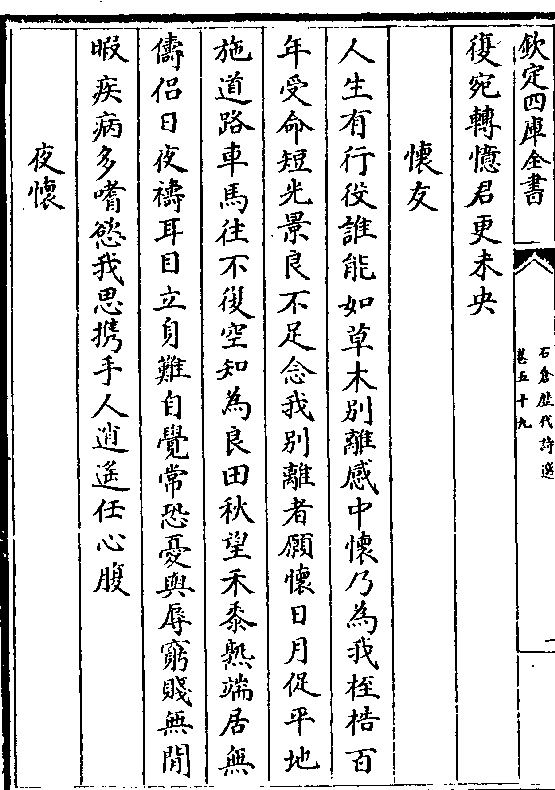 欽定四庫全書
石倉歷代詩選
卷五十九
復宛轉憶君更未央
懷友
人生有行役誰能如草木別離感中懷乃為我桎梏百
年受命短光景良不足念我別離者願懷日月促平地
施道路車馬往不復空知為良田秋望禾黍熟端居無
儔侶日夜禱耳目立身難自覺常恐憂與辱窮賤無閒
暇疾病多嗜慾我思攜手人逍遙任心腹
夜懷